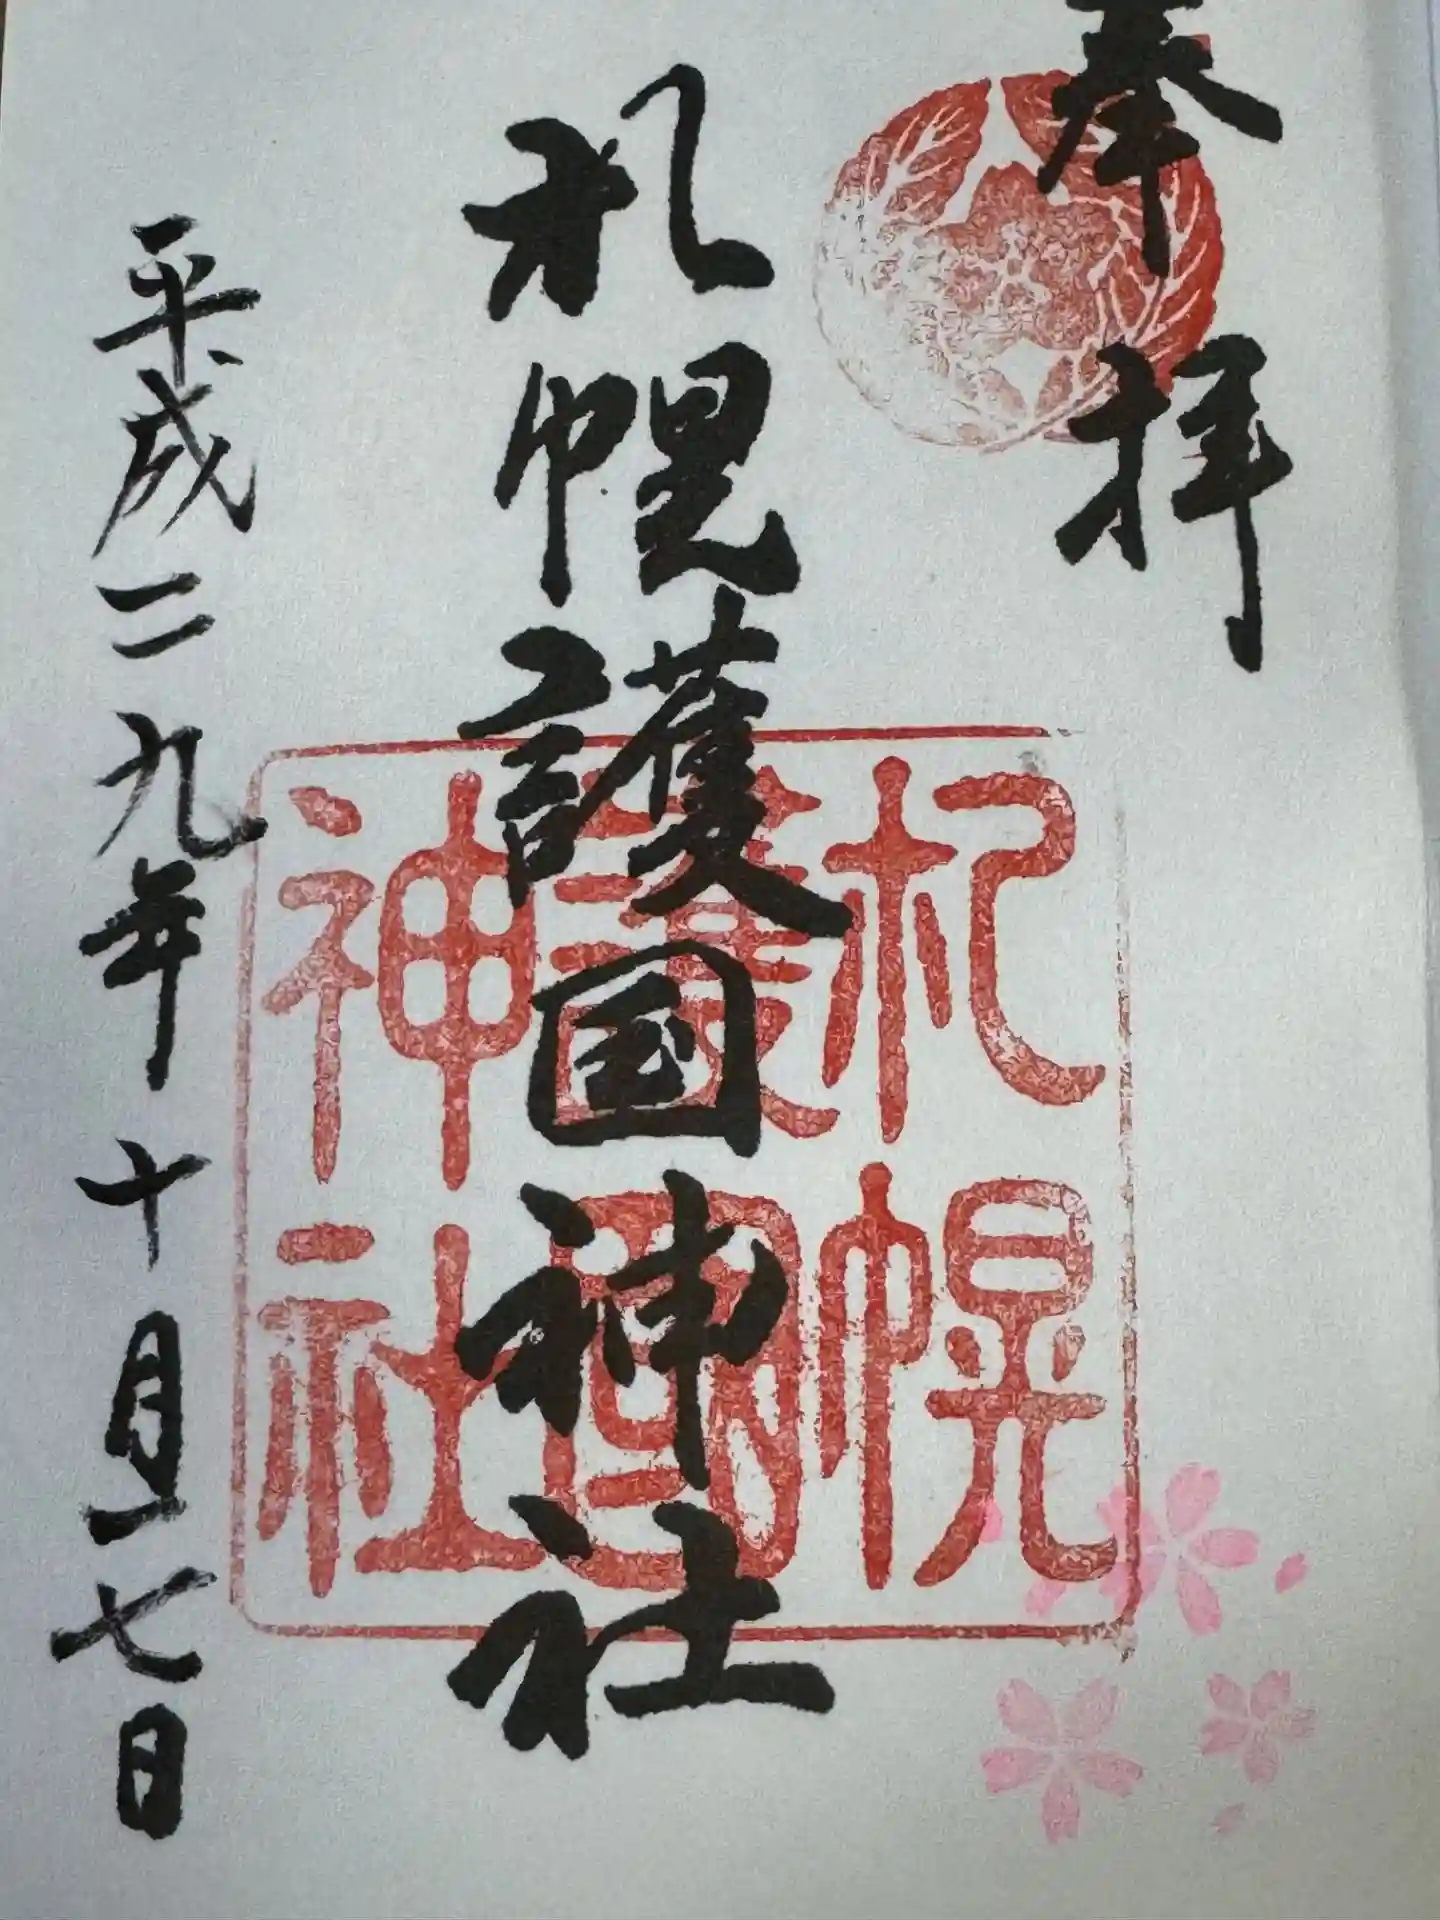 奉拝
札幌護国神社
札幌
護國
神社
平成二九年十月一七日